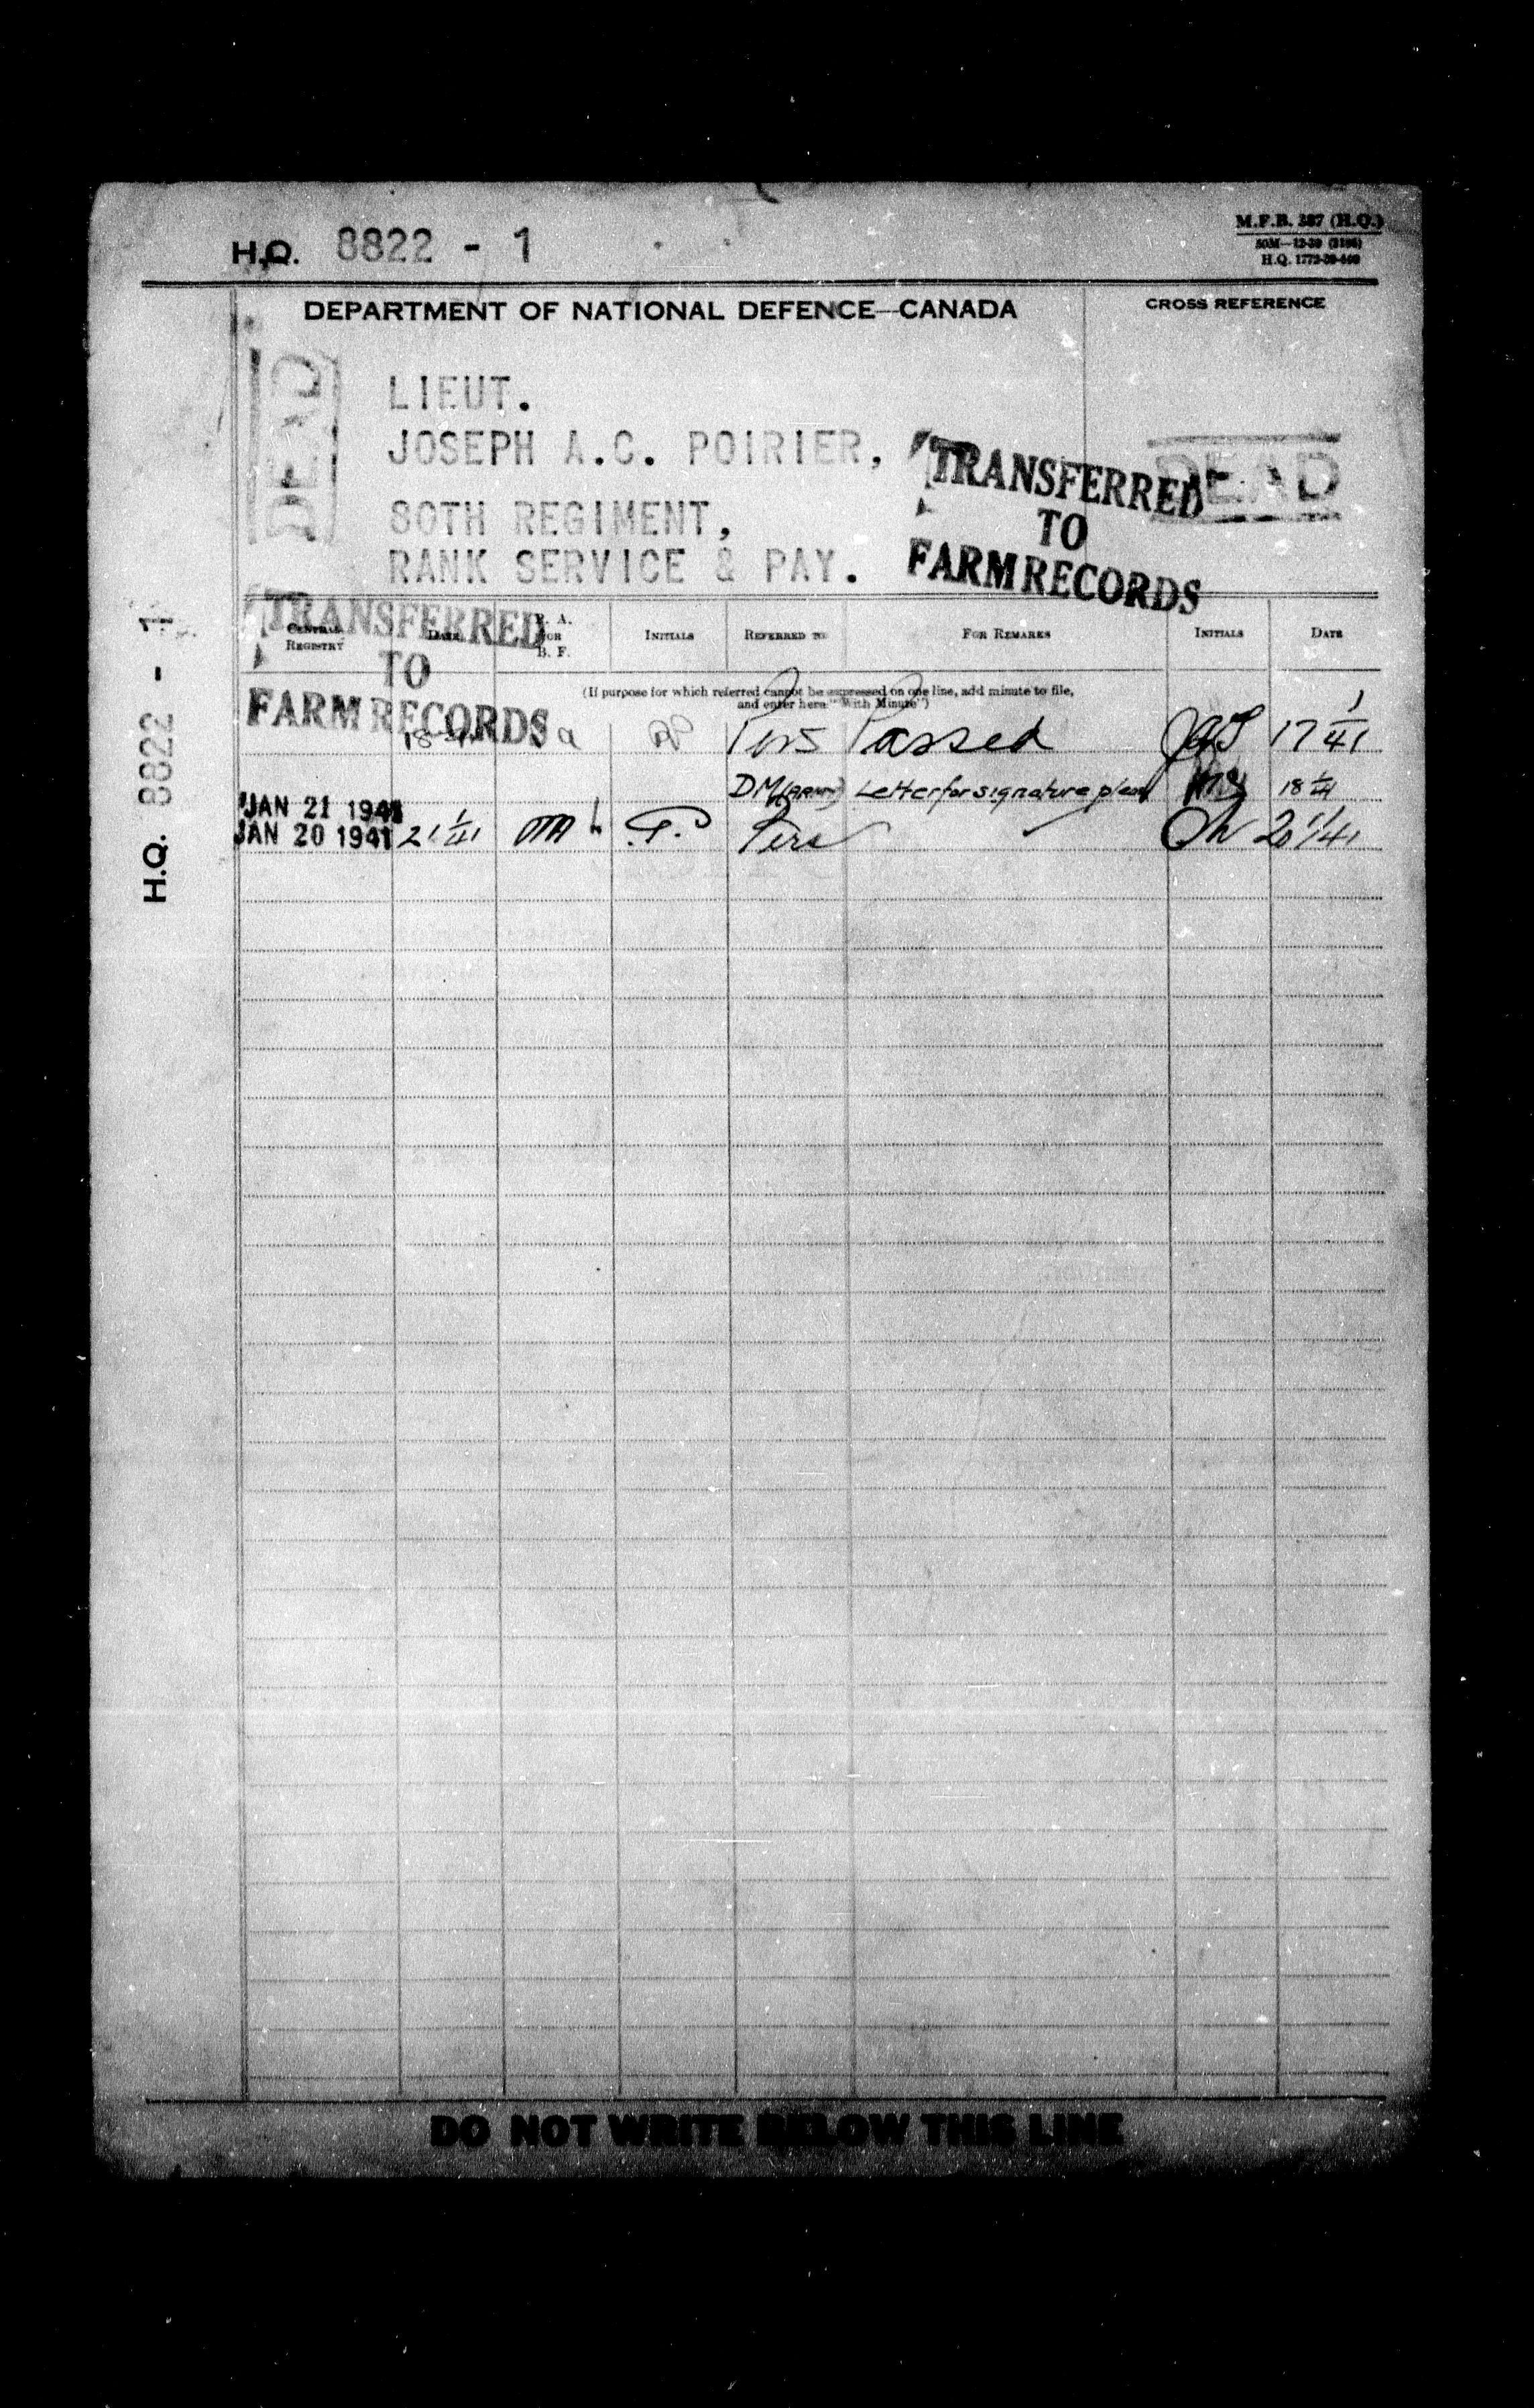 H.Q. 8822 - 1
M.F.B. 387 (H.Q.)
50M-12-39 (3186)
H.Q. 1772-39-440
DEPARTMENT OF NATIONAL DEFENCE—CANADA
CROSS REFERENCE
DEAD
LIEUT.
JOSEPH A.C. POIRIER,
80TH REGIMENT,
RANK SERVICE & PAY.
TRANSFERRED
TO
FARM RECORDS
DEAD
TRANSFERRED
TO
FARM RECORDS
H.Q. 8822 - 1
CENTRAL REGISTRY DATE P. A. OR B. F. INITIALS REFERRED TO FOR REMARKS INITIALS DATE
(If purpose for which referred cannot be expressed on one line, add minute to file,
and enter here "With Minute")
Pers Passed 17 1/41
DM (ARMY) Letter for signature please 18 1/41
JAN 21 1941
JAN 20 1941 21 1/41 Pers 20/1/41
DO NOT WRITE BELOW THIS LINE